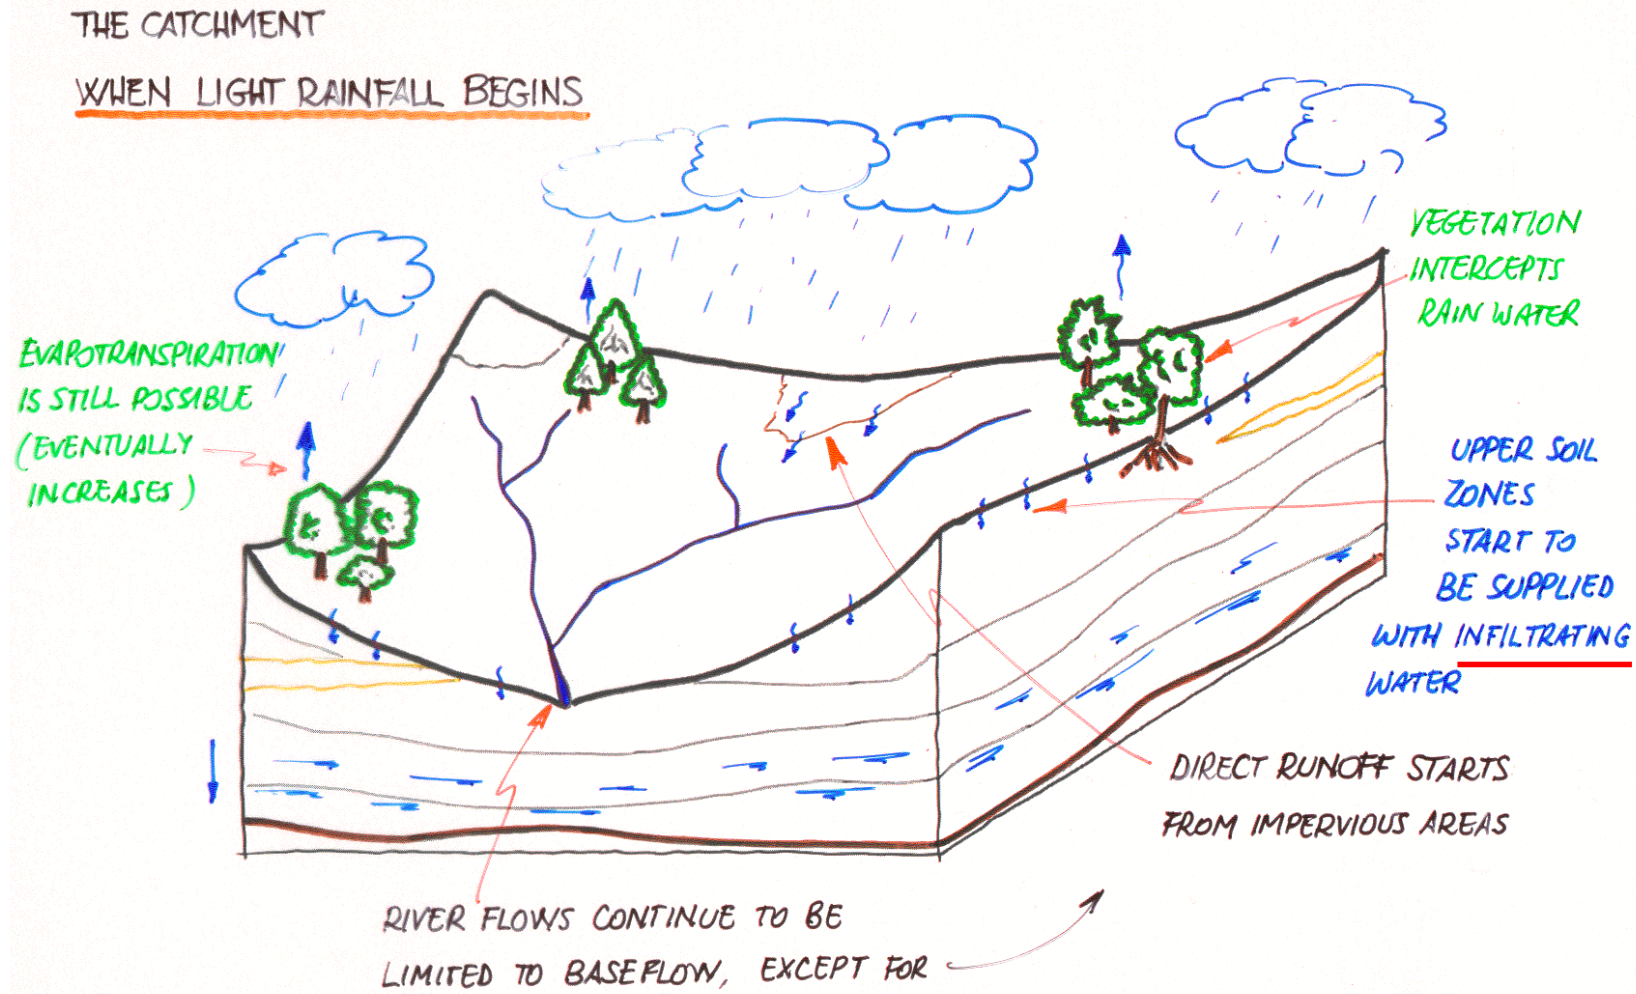 THE CATCHMENT
WHEN LIGHT RAINFALL BEGINS
EVAPOTRANSPIRATION
IS STILL POSSIBLE
(EVENTUALLY
INCREASES)
VEGETATION
INTERCEPTS
RAIN WATER
UPPER SOIL
ZONES
START TO
BE SUPPLIED
WITH INFILTRATING
WATER
DIRECT RUNOFF STARTS
FROM IMPERVIOUS AREAS
RIVER FLOWS CONTINUE TO BE
LIMITED TO BASEFLOW, EXCEPT FOR